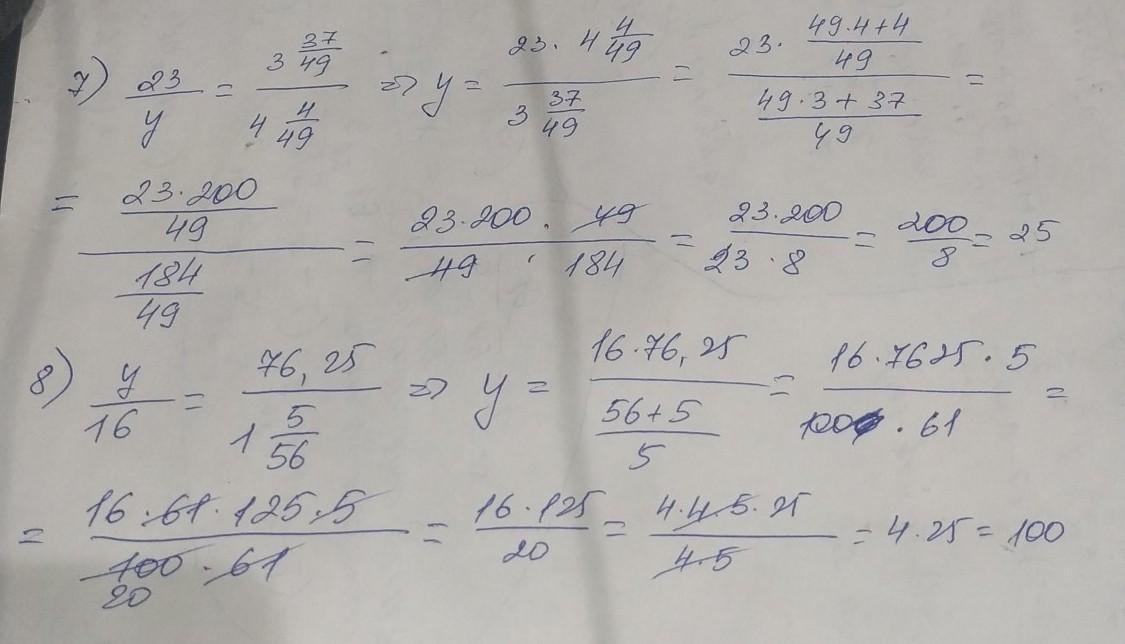 7) 23/y = 3 37/49 / 4 4/49 => y = 23 · 4 4/49 / 3 37/49 = 23 · (49·4+4)/49 / (49·3+37)/49 =
= (23·200)/49 / 184/49 = 23·200/49 · 49/184 = 23·200/23·8 = 200/8 = 25
8) y/16 = 76,25 / 1 5/56 => y = 16·76,25 / (56+5)/5 = 16·7625·5 / 100 · 61 =
= 16·61·125·5 / 100·61 20 = 16·125/20 = 4·4·5·25 / 4·5 = 4·25 = 100